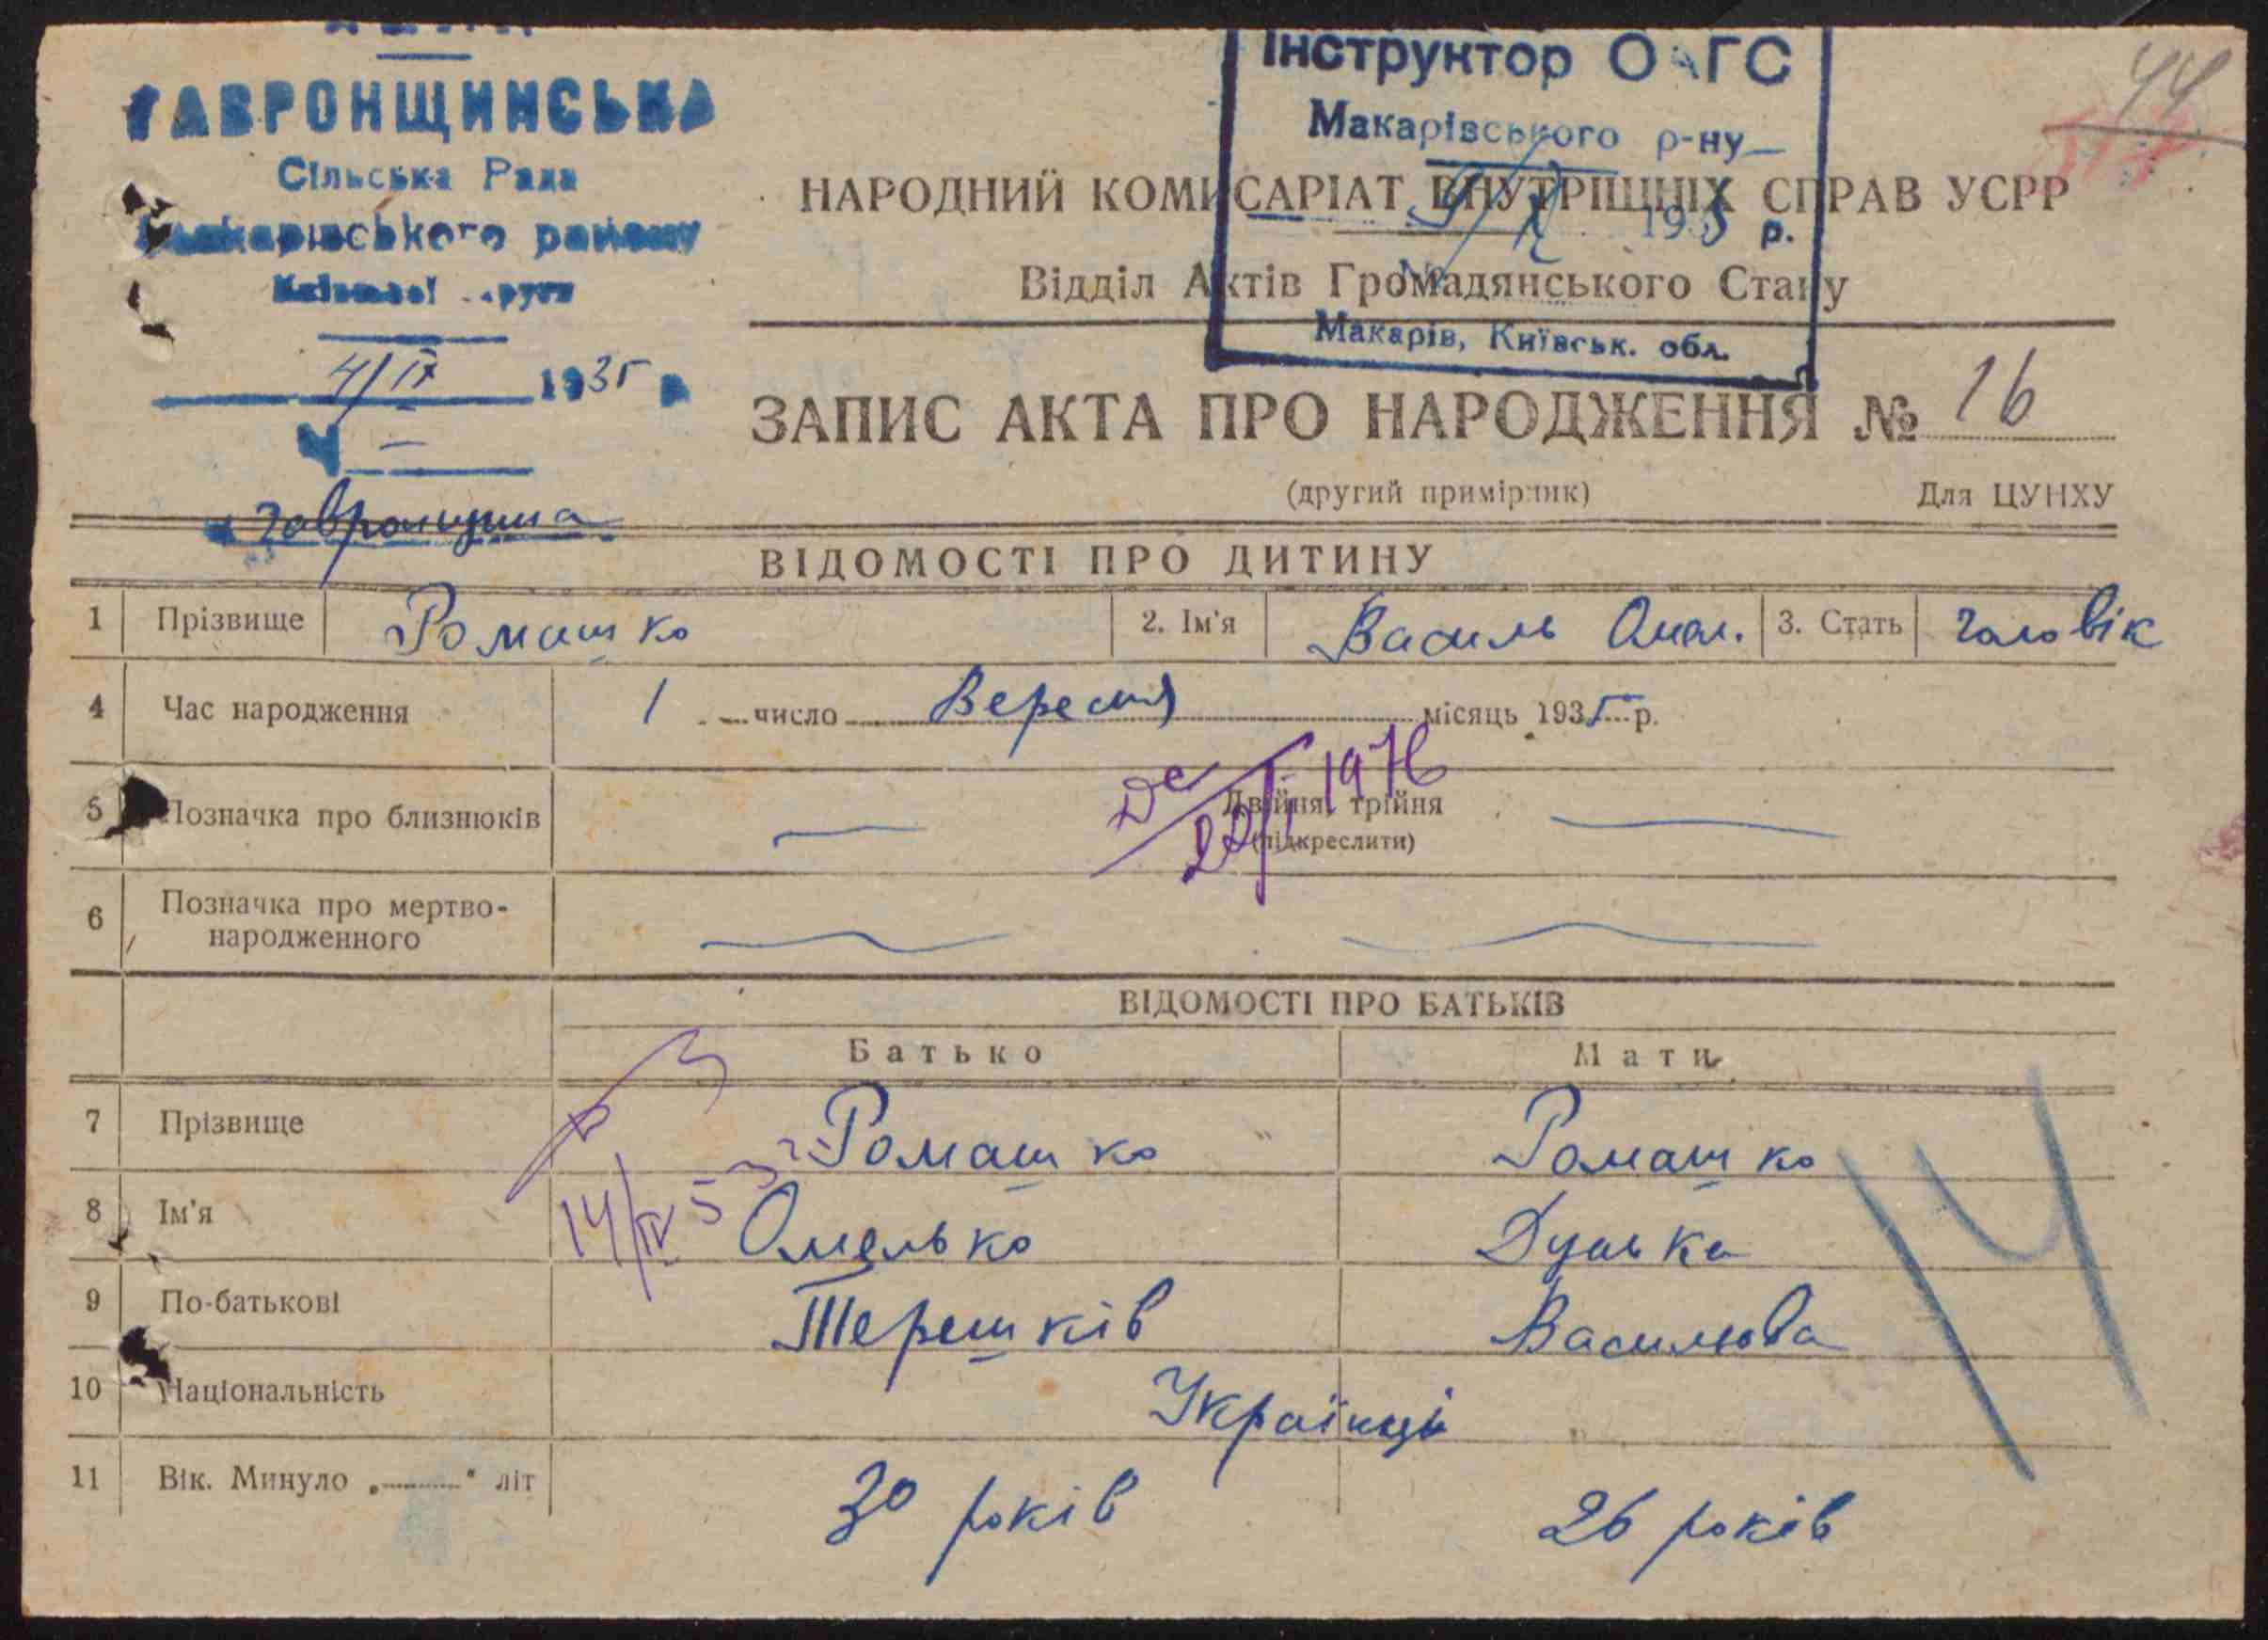 ГАВРОНЩИНСЬКА
Сільська Рада
Макарівського району
4/IX 1935 р
Гавронщина
Інструктор ОАГС
Макарівського р-ну
193 р.
Макарів, Київськ. обл.
44
НАРОДНИЙ КОМИСАРІАТ ВНУТРІШНІХ СПРАВ УСРР
Відділ Актів Громадянського Стану
ЗАПИС АКТА ПРО НАРОДЖЕННЯ № 16
(другий примірник) Для ЦУНХУ
ВІДОМОСТІ ПРО ДИТИНУ
1 Прізвище Ромашко 2. Ім'я Василь Омел. 3. Стать Чоловік
4 Час народження 1 число Вересня місяць 1935 р.
22/I 1976
5 Позначка про близнюків Двійня, трійня
(підкреслити)
6 Позначка про мертво-
народженного
ВІДОМОСТІ ПРО БАТЬКІВ
Батько Мати
7 Прізвище Ромашко Ромашко
14/IV 53 г.
8 Ім'я Омелько Дунька
9 По-батькові Терешків Василова
10 Національність Українці
11 Вік. Минуло „ " літ 30 років 26 років
14